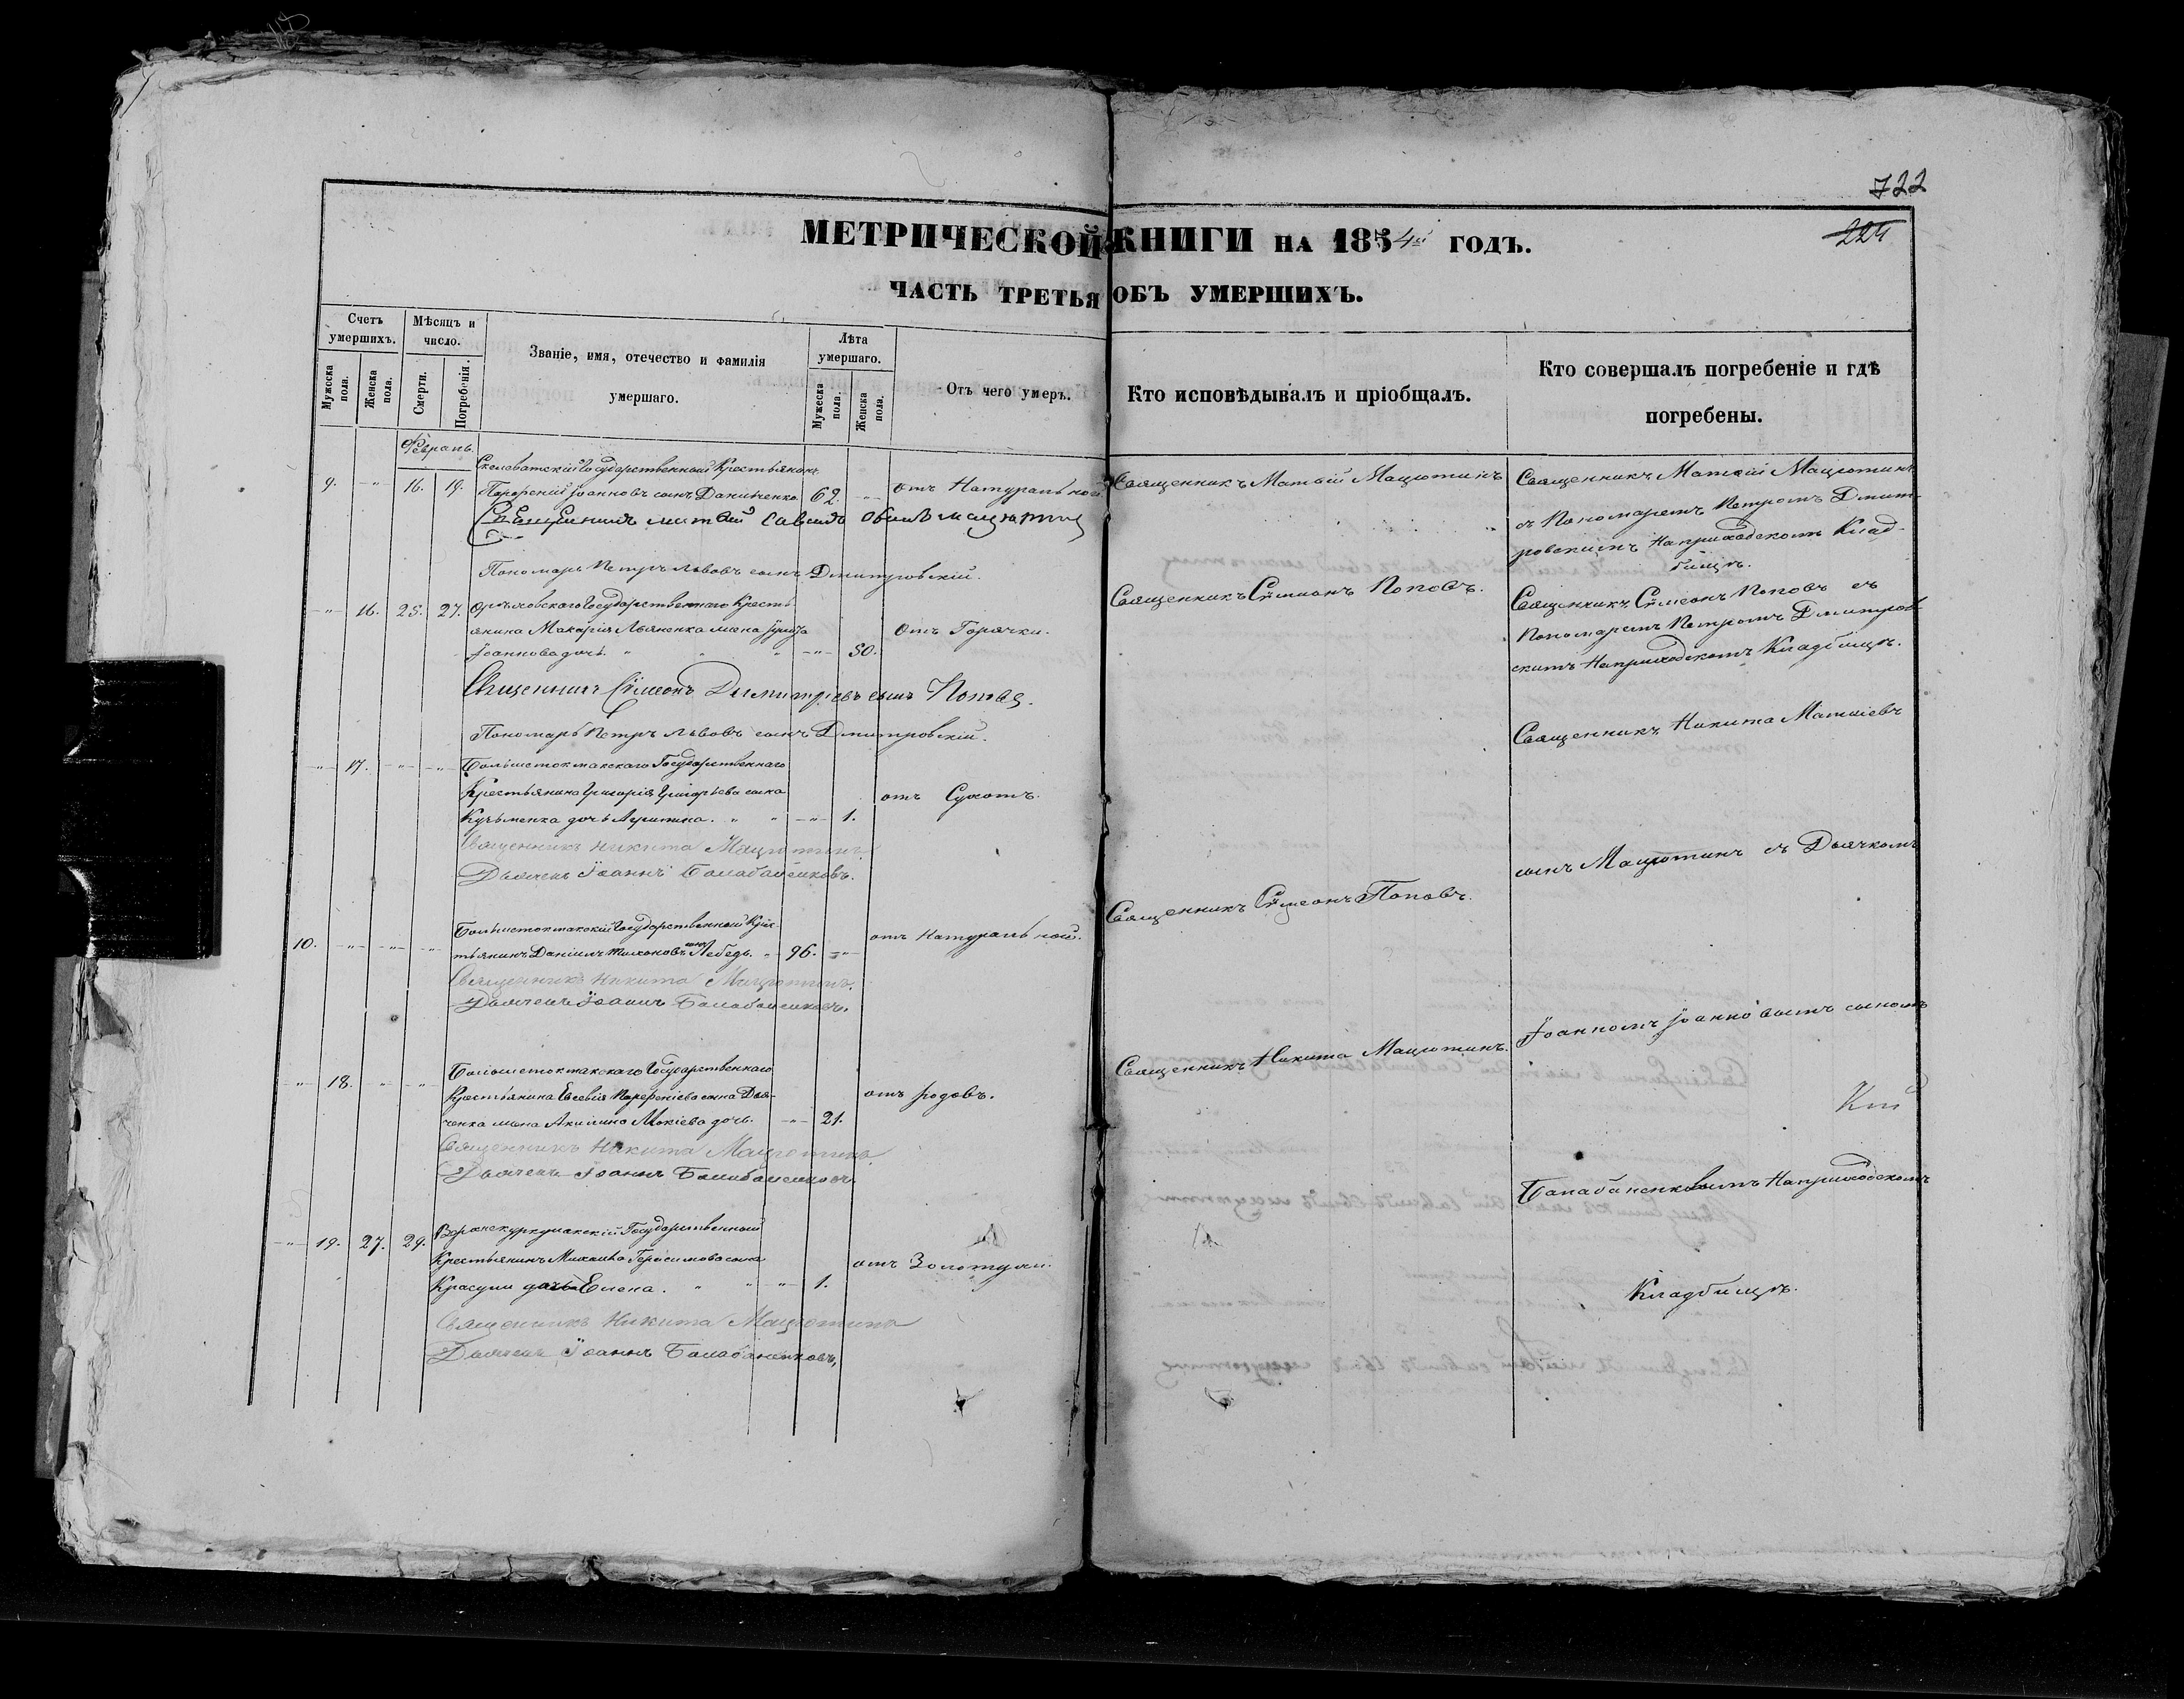 722
224
МЕТРИЧЕСКОЙ КНИГИ НА 1854й ГОДЪ.
ЧАСТЬ ТРЕТЬЯ ОБЪ УМЕРШИХЪ.
Счетъ умершихъ.
Мужеска пола.
Женска пола.
Мѣсяцъ и число.
Смерти.
Погребенія.
Званіе, имя, отечество и фамилія
умершаго.
Лѣта умершаго.
Мужеска пола.
Женска пола.
Отъ чего умеръ.
Кто исповѣдывалъ и пріобщалъ.
Кто совершалъ погребеніе и гдѣ
погребены.
Февраль.
9. -"- 16. 19.
Государственный Крестьянинъ
Парфеній Іоанновъ сынъ Данильченко 62. -"-
отъ Натуральной.
Священникъ Матѳій Мацютинъ
Священникъ Матѳій Мацютинъ
съ Пономаремъ Петромъ Дмит-
ровскимъ На приходскомъ Клад-
бищѣ.
Священникъ Матвій Савинъ сынъ Мацютин
Пономарь Петръ Львовъ сынъ Дмитровскій.
-"- 16. 25. 27.
Орѣховскаго Государственнаго Кресть-
янина Макарія жена
Іоаннова дочь. " " " -"- 50.
отъ Горячки.
Священникъ Сѵмеонъ Поповъ.
Священникъ Сѵмеонъ Поповъ съ
Пономаремъ Петромъ Дмитров-
скимъ На приходскомъ Кладбищѣ.
Священникъ Сѵмеонъ Дымитріевъ сынъ Поповъ.
Пономарь Петръ Львовъ сынъ Дмитровскій.
-"- 17. -"- -"-
Большетокмакскаго Государственнаго
Крестьянина Григорія Григорьева сына
Кузьменка дочь " " -"- 1.
отъ Сухотъ.
Священникъ Никита Матѳіевъ
Священникъ Никита Мацютинъ
Дьячекъ Іоаннъ Балабаненковъ.
сынъ Мацютинъ съ Дьячкомъ
10. -"- -"- -"-
Большетокмакскій Государственный Крес-
тьянинъ Даніилъ Тихоновъ сынъ Лебедь. " 96. -"-
отъ натуральной.
Священникъ Сѵмеонъ Поповъ.
Священникъ Никита Мацютинъ.
Дьячекъ Іоаннъ Балабаненковъ.
Іоанномъ Іоанновымъ сыномъ
-"- 18. -"- -"-
Большетокмакскаго Государственнаго
Крестьянина Евсевія Парфеніева сына Дья-
ченка жена Акилина Мокіева дочь. -"- 21.
отъ родовъ.
Священникъ Никита Мацютинъ.
Священникъ Никита Мацютинъ
Дьячекъ Іоаннъ Балабаненковъ
Балабаненковымъ На приходскомъ
-"- 19. 27. 29.
Государственный
Крестьянинъ Михаила Герасимова сына
Красули дочь Елена. " " -"- 1.
отъ Золотухи.
Кладбищѣ.
Священникъ Никита Мацютинъ
Дьячекъ Іоаннъ Балабаненковъ,